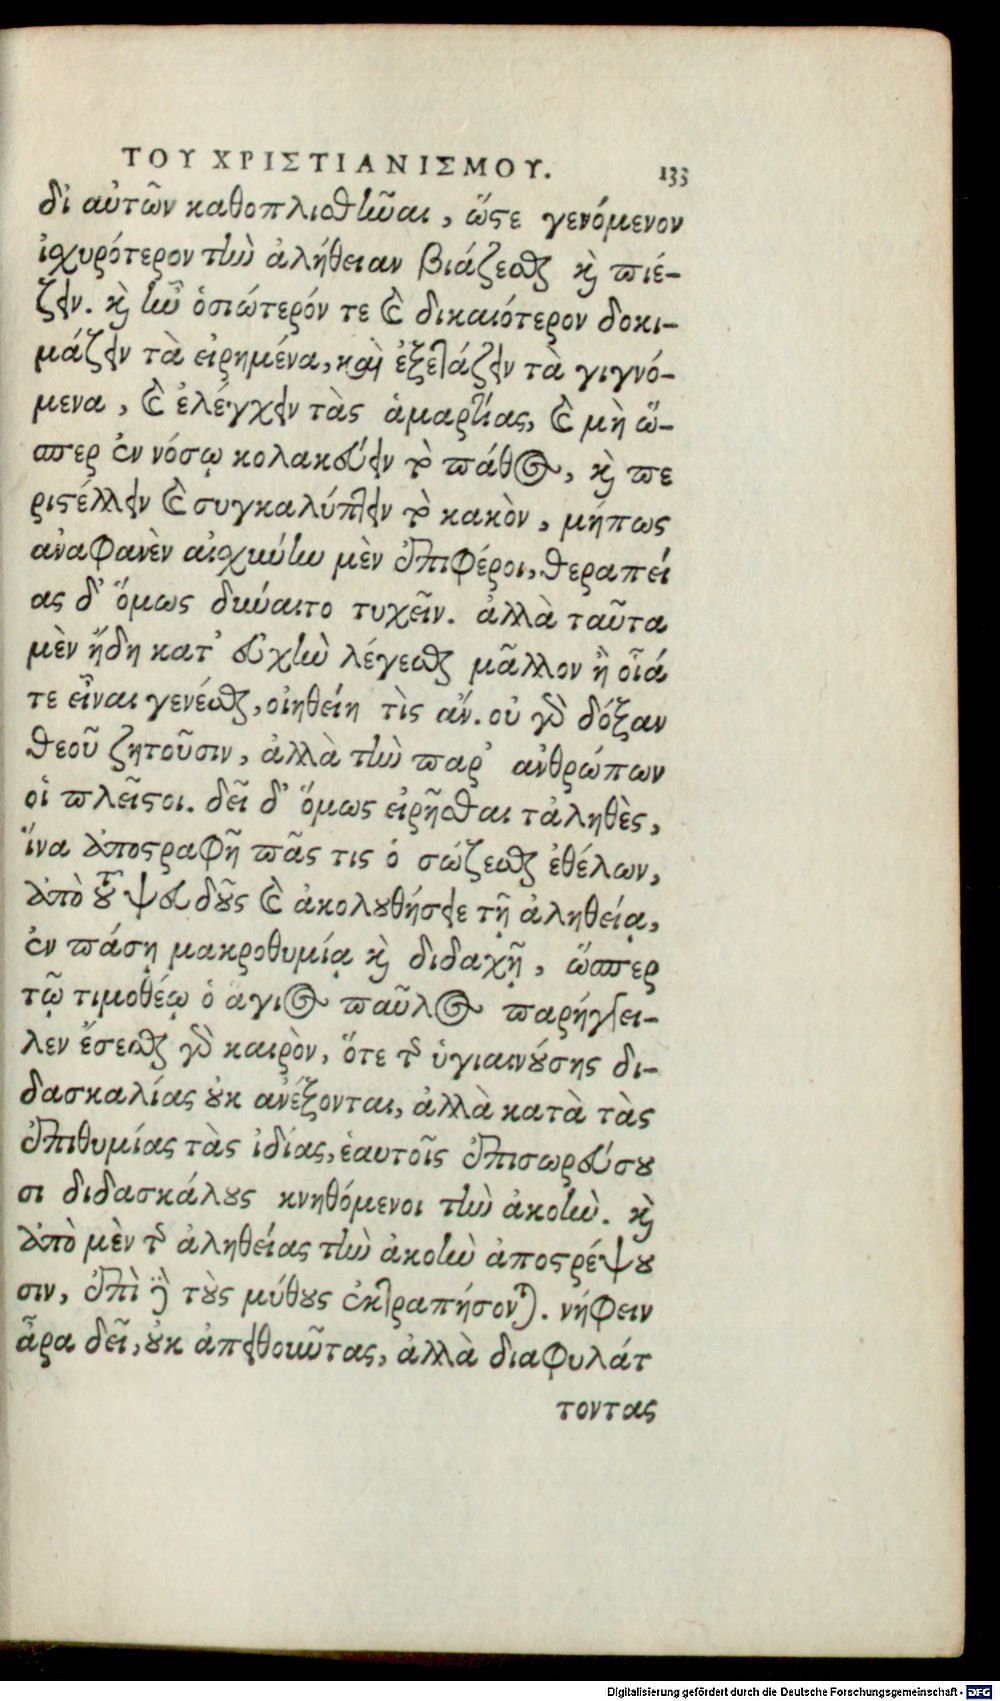 ΤΟΥ ΧΡΙΣΤΙΑΝΙΣΜΟΥ. 133
δι αὐτῶν καθοπλισθῆναι, ὥςε γενόμενον
ἰσχυρότερον τὴν ἀλήθειαν βιάζεσθαι καὶ πιέ-
ζειν. καὶ ἦν ὁσιώτερόν τε καὶ δικαιότερον δοκι-
μάζειν τὰ εἰρημένα, καὶ ἐξετάζειν τὰ γιγνό-
μενα, καὶ ἐλέγχειν τὰς ἁμαρτίας, καὶ μὴ ὥ-
σπερ ἐν νόσῳ κολακεύειν τὸ πάθος, καὶ πε
ριςέλλειν καὶ συγκαλύπτειν τὸ κακὸν, μήπως
ἀναφανὲν αἰσχύνην μὲν ἐπιφέροι, θεραπεί
ας δ' ὅμως δύναιτο τυχεῖν. ἀλλὰ ταῦτα
μὲν ἤδη κατ' εὐχὴν λέγεσθαι μᾶλλον ἢ οἷά
τε εἶναι γενέσθαι, οἰηθείη τὶς ἄν. οὐ γὰρ δόξαν
θεοῦ ζητοῦσιν, ἀλλὰ τὴν παρ' ἀνθρώπων
οἱ πλεῖςοι. δεῖ δ' ὅμως εἰρῆσθαι τἀληθὲς,
ἵνα ἀποςραφῇ πᾶς τις ὁ σώζεσθαι ἐθέλων,
ἀπὸ τοῦ ψεύδους καὶ ἀκολουθήσειε τῇ ἀληθείᾳ,
ἐν πάσῃ μακροθυμίᾳ καὶ διδαχῇ, ὥσπερ
τῷ τιμοθέῳ ὁ ἅγιος παῦλος παρήγγει-
λεν ἔσεσθαι γὰρ καιρὸν, ὅτε τῆς ὑγιαινούσης δι-
δασκαλίας οὐκ ἀνέξονται, ἀλλὰ κατὰ τὰς
ἐπιθυμίας τὰς ἰδίας, ἑαυτοῖς ἐπισωρεύσου
σι διδασκάλους κνηθόμενοι τὴν ἀκοὴν. καὶ
ἀπὸ μὲν τῆς ἀληθείας τὴν ἀκοὴν ἀποςρέψου
σιν, ἐπὶ δὲ τοὺς μύθους ἐκτραπήσονται. νήφειν
ἆρα δεῖ, οὐκ ἀπειθοῦντας, ἀλλὰ διαφυλάτ
τοντας
Digitalisierung gefördert durch die Deutsche Forschungsgemeinschaft - DFG